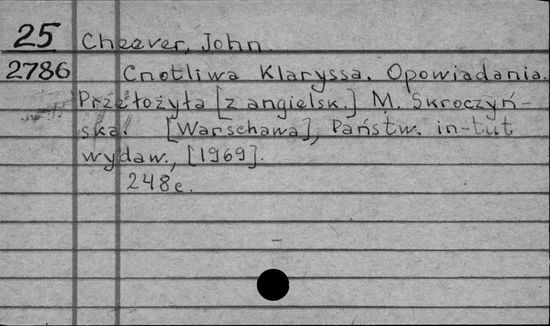 25 Cheever, John.
2786 Cnotliwa Klaryssa. Opowiadania.
Przełożyła [z angielsk.] M. Skroczyń-
ska. [Warschawa], Państw. in-tut
wydaw., [1969].
248 c.